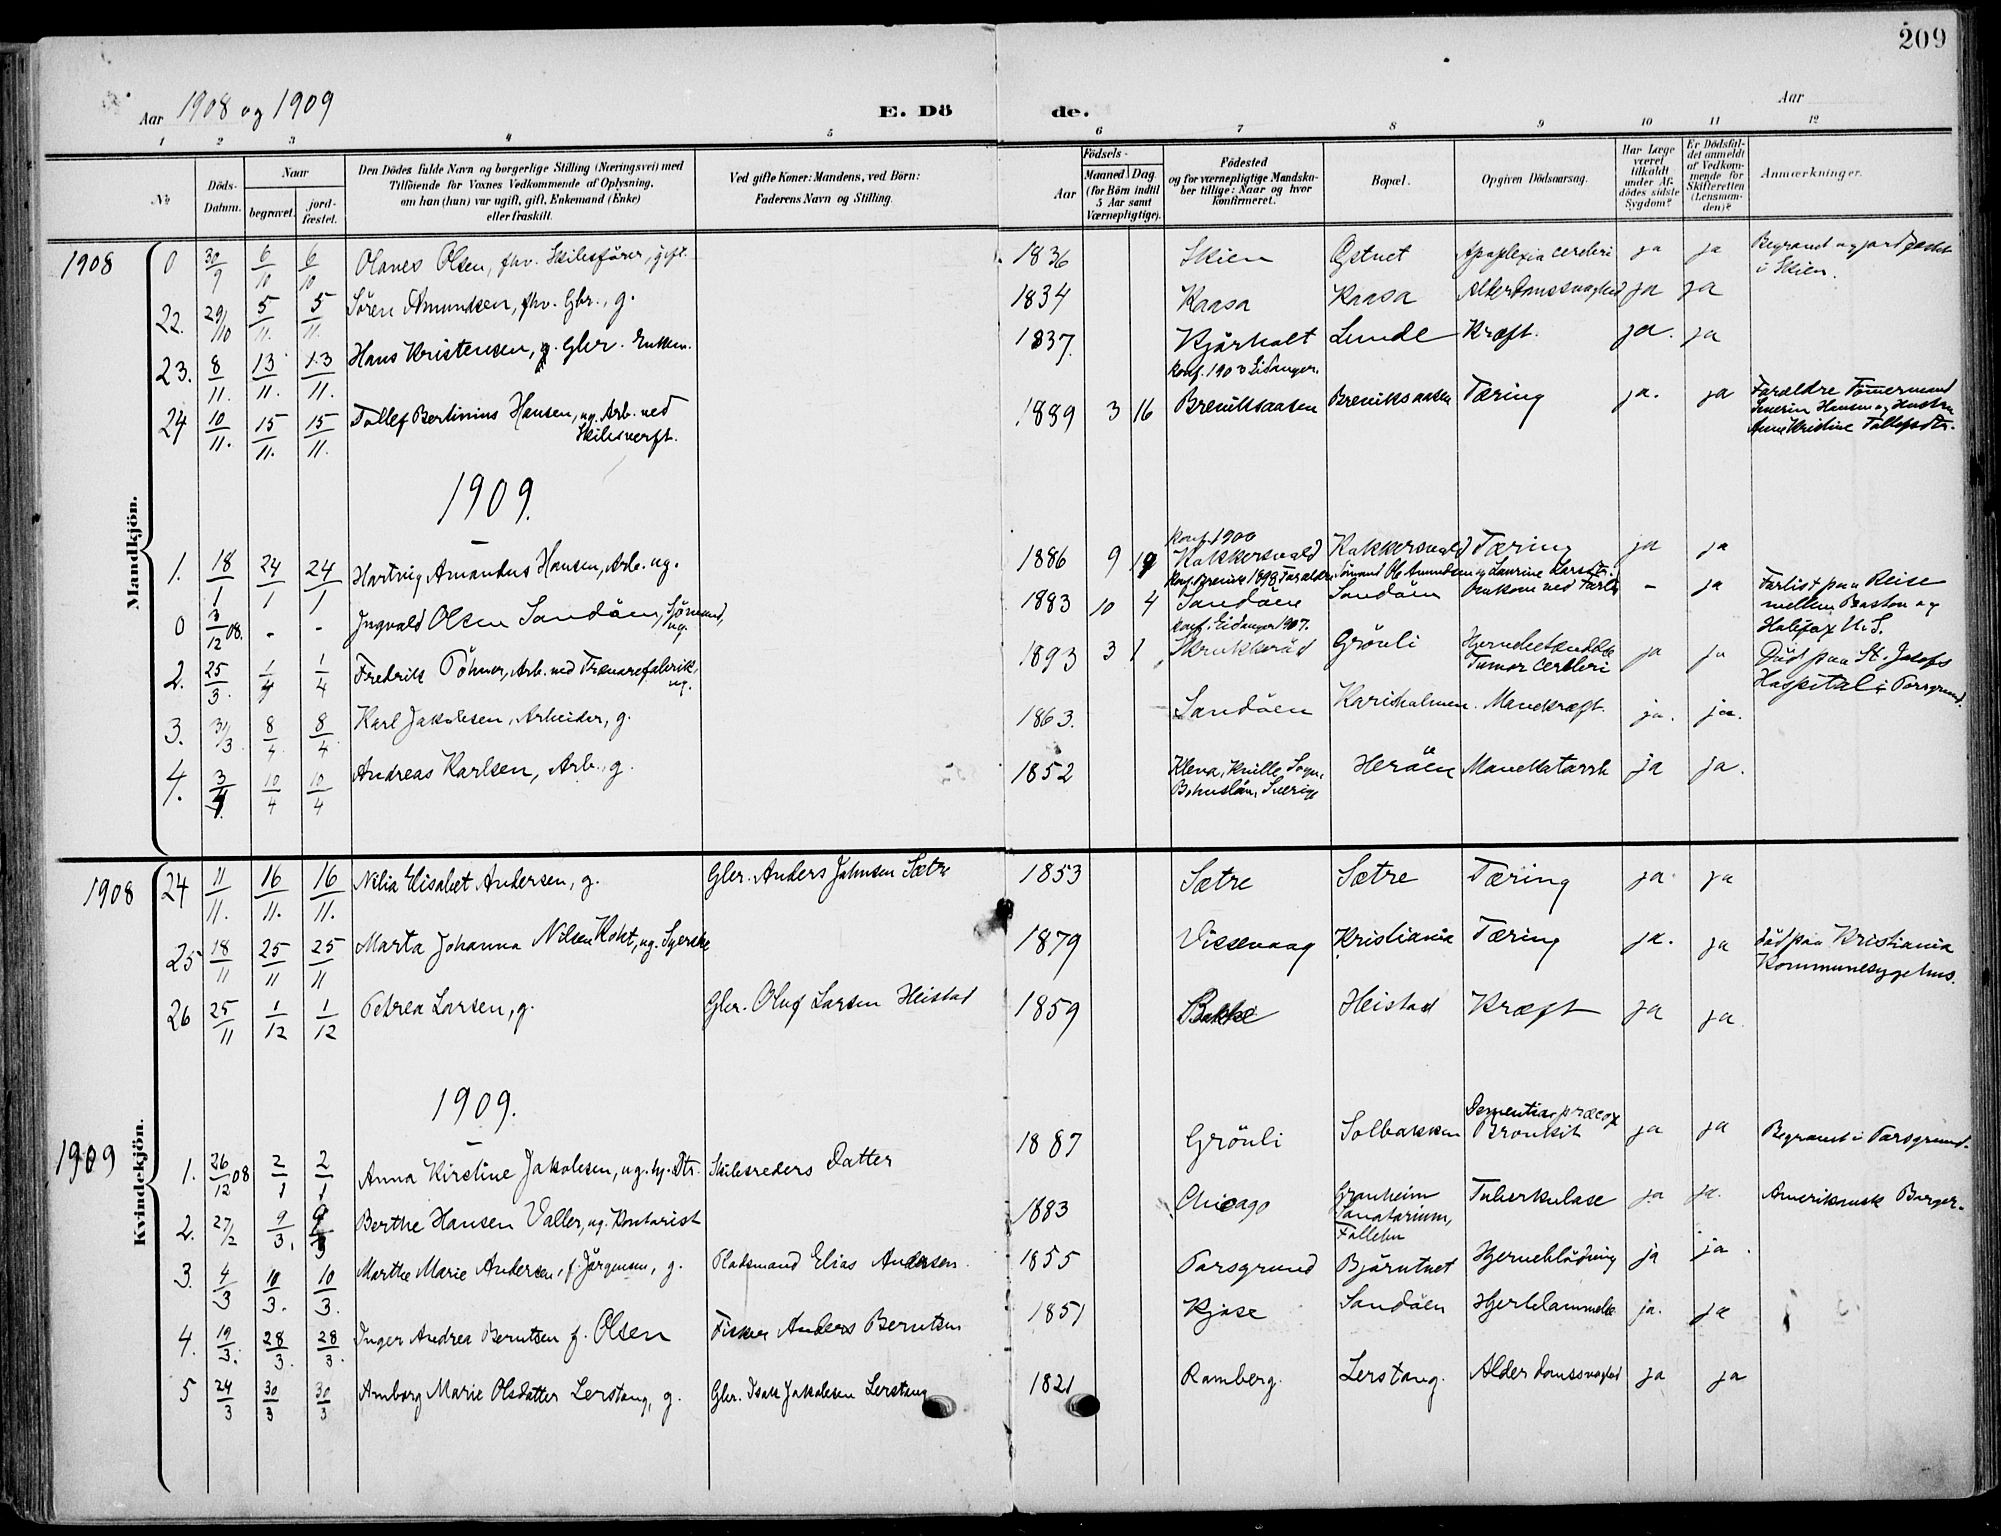 209
Aar 1908 og 1909
E. Döde.
Aar
1 2 3 4 5 6 7 8 9 10 11 12
No
Döds-Datum.
Naar
begravet.
jord-fæstet.
Den Dödes fulde Navn og borgerlige Stilling (Næringsvei) med
Tilföiende for Voxnes Vedkommende af Oplysning,
om han (hun) var ugift, gift, Enkemand (Enke)
eller fraskilt.
Ved gifte Koner: Mandens, ved Börn:
Faderens Navn og Stilling.
Födsels-
Aar
Maaned Dag
(for Börn indtil
5 Aar samt
Værnepligtige).
Födested
og for værnepligtige Mandska-
ber tillige: Naar og hvor
konfirmeret.
Bopæl.
Opgiven Dödsaarsag.
Har Læge
været
tilkaldt
under Af-
dödes sidste
Sygdom?
Er Dödsfal-
det anmeldt
af Vedkom-
mende for
Skifteretten
(Lensman-
den)?
Anmærkninger.
Mandkjön.
1908 0 30/9 6/10 6/10 Olaves Olsen, fhv. Skibsförer, gift. 1836 Skien Østvet Apoplexia cerebri ja ja Begravet og jordfæstet
i Skien.
22. 29/10 5/11. 5/11. Sören Amundsen, fhv. Gbr., g. 1834 Kaasa Kaasa Alderdomssvaghed ja ja
23. 8/11. 13/11. 13/11. Hans Kristensen, Gbr. Enkem. 1837. Kjørholt Lunde Kræft. ja. ja
konf. 1903 Eidanger.
24 10/11. 15/11. 15/11. Tollef Bertinius Hansen, ug. Arb. ved
Skibsverft. 1889 3 16 Breviksaasen Breviksaasen Tæring ja. ja Forældre Tömmermand
Severin Hansen og Hustru
Anne Kristine Tollefsdtr.
1909.
konf. 1900
1. 18/1 24/1 24/1 Hartvig Amandus Hansen, Arb. ug. 1886 9 Kokkersvold Kokkersvold Tæring ja ja
konf. Brevik 1898 Forældre Sömand Ole Amundsen og Laurine Larsdtr.
0 3/12 08. - - Ingvald Olsen Sandöen, Sjömand,
ug. 1883 10 4 Sandöen Sandöen Omkom ved Forlis - ja Forlist paa Reise
mellem Boston og
Halifax U.S.
konf. Eidanger 1907.
2. 25/3. 1/4 1/4 Fredrik Töhner, Arb. ved Trævarefabrik,
ug. 1893 3 1 Skrukkeröd Grönli
Tumor cerebri ja ja Död paa St. Josefs
Hospital i Porsgrund.
3. 31/3 8/4 8/4 Karl Jakobsen, Arbeider, g. 1863. Sandöen Karisholmen. Mavekræft. ja. ja.
4. 3/4. 10/4 10/4 Andreas Karlsen, Arb., g. 1852 Kleva, Sogn,
Bohuslän, Sverige Heröen Mavekatarrh ja ja.
Kvindekjön.
1908 24 11/11. 16/11. 16/11. Nilia Elisabet Andersen, g. Gbr. Anders Johnsen Sætre 1853 Sætre Sætre Tæring ja. ja
25 18/11 25/11 25/11 Marta Johanna Nilsen Kokt, ug. Syerske 1879 Vissevaag Kristiania Tæring ja. ja död paa Kristiania
Kommunesygehus.
26 25/11 1/12 1/12 Petrea Larsen, g. Gbr. Oluf Larsen Heistad 1859 Bakke Heistad Kræft ja ja
1909.
1909 1. 26/12 08 2/1 2/1 Anna Kirstine Jakobsen, ug. hj. Dtr. Skibsreders Datter 1887 Grönli Solbakken Dementia præcox
Bronkit ja ja Begravet i Porsgrund.
2. 27/2 9/3. 9/3 Berthe Hansen Valler, ug. Kontorist 1883 Chicago Granheim
Sanatorium,
Follebu Tuberkulose ja ja. Amerikansk Borger.
3. 4/3 10/3. 10/3. Marthe Marie Andersen, f. Jörgensen, g. Pladsmand Elias Andersen. 1855 Porsgrund Bjørntvet Hjerneblödning ja ja.
4. 19/3. 28/3. 28/3. Inger Andrea Berntsen f. Olsen Fisker Anders Berntsen 1851 Kjose Sandöen Hjertelammelse ja. ja
5 24/3 30/3 30/3 Amborg Marie Olsdatter Lerstang, g. Gbr. Isak Jakobsen Lerstang 1821 Ramberg. Lerstang. Alderdomssvaghed ja ja